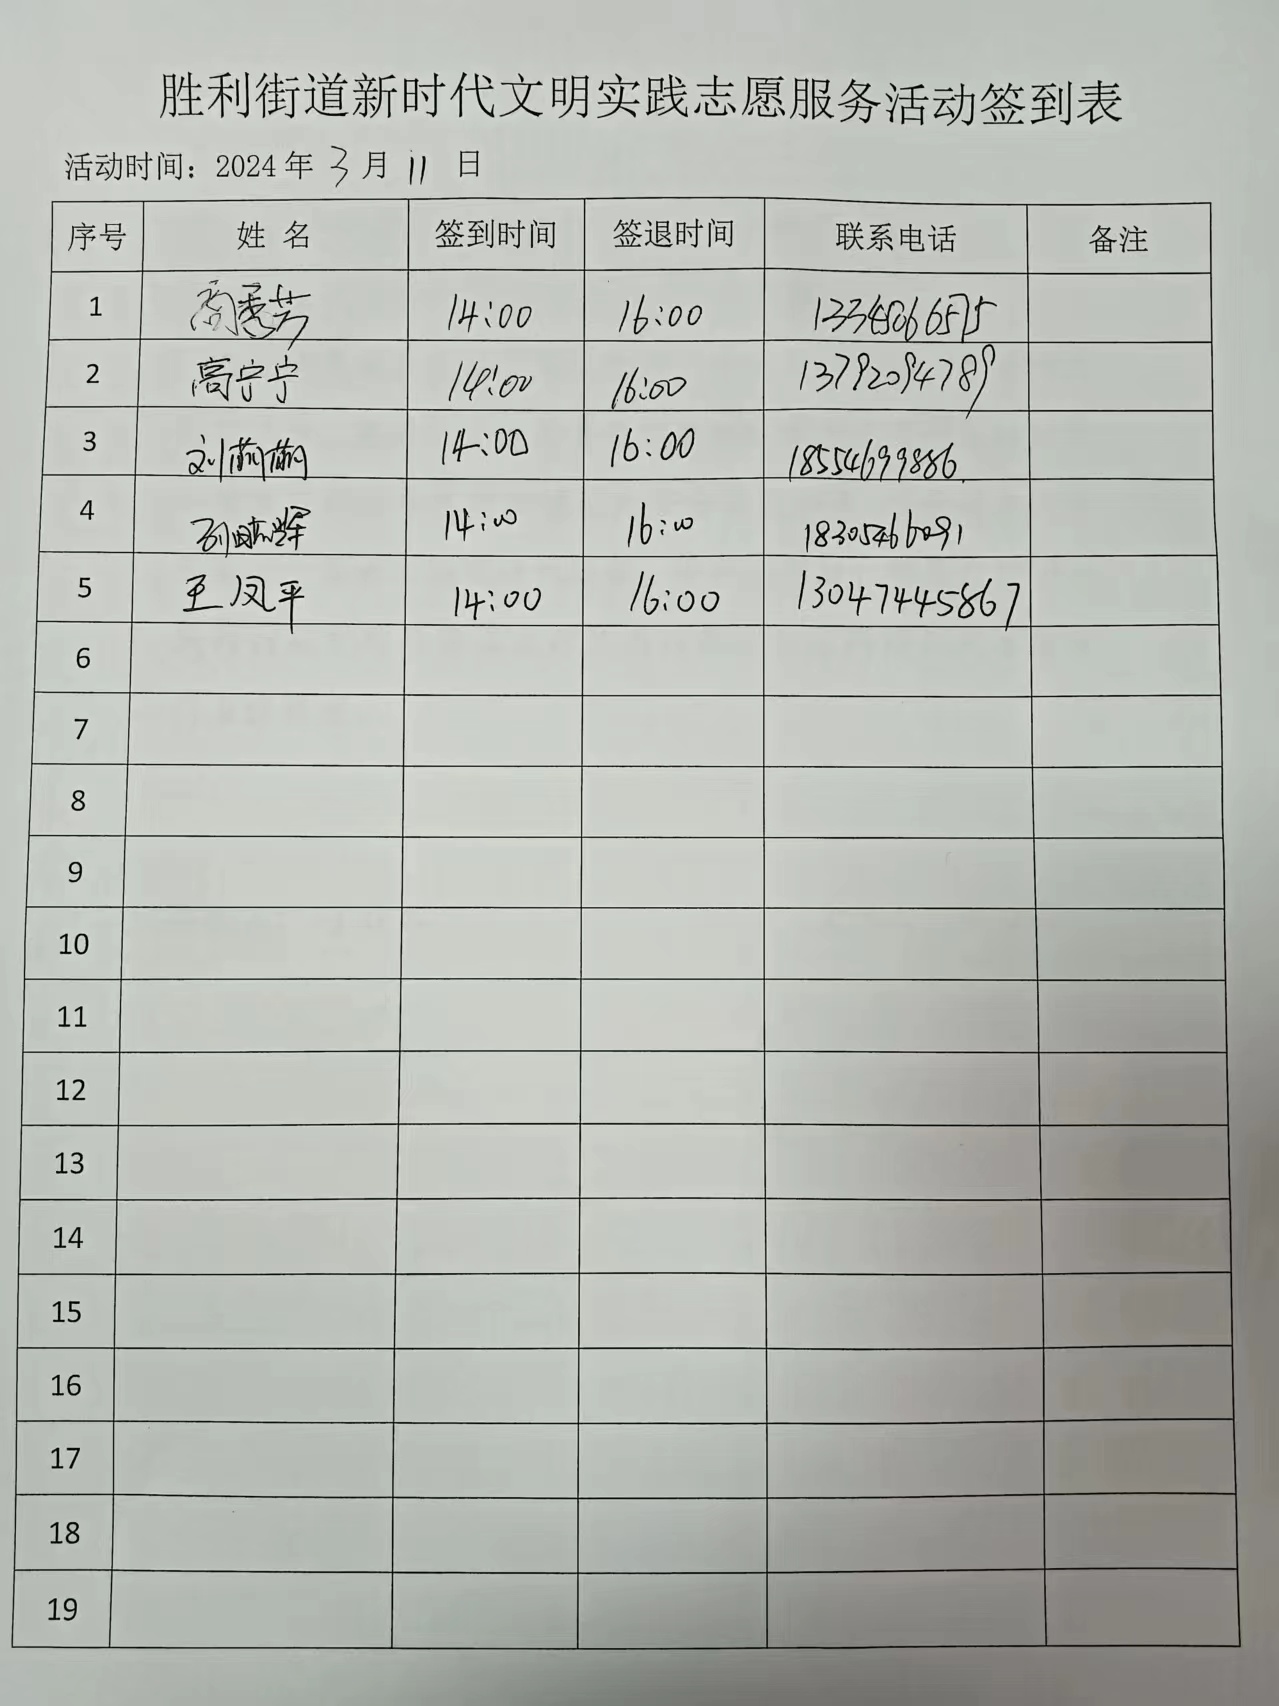 胜利街道新时代文明实践志愿服务活动签到表
活动时间：2024 年 3 月 11 日
序号 姓 名 签到时间 签退时间 联系电话 备注
1 14:00 16:00
2 高宁宁 14:00 16:00 13792094789
3 14:00 16:00 18554699886
4 14:00 16:00 18305466091
5 王凤平 14:00 16:00 13047445867
6
7
8
9
10
11
12
13
14
15
16
17
18
19